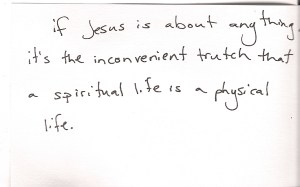 if Jesus is about anything,
it's the inconvenient trutch that
a spiritual life is a physical
life.